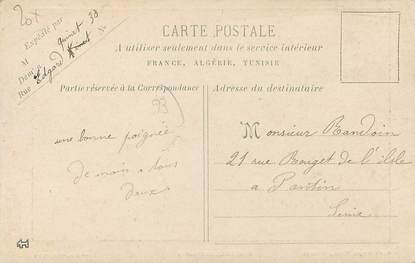 20x
CARTE POSTALE
A utiliser seulement dans le service intérieur
FRANCE, ALGÉRIE, TUNISIE
Expédié par
M
Dem
Rue Edgard Quinet 33
N°
Partie réservée à la Correspondance
Adresse du destinataire
une bonne poignée
de main a tous
deux
Monsieur Baudoin
21 rue Rouget de l'isle
a Pantin
Seine